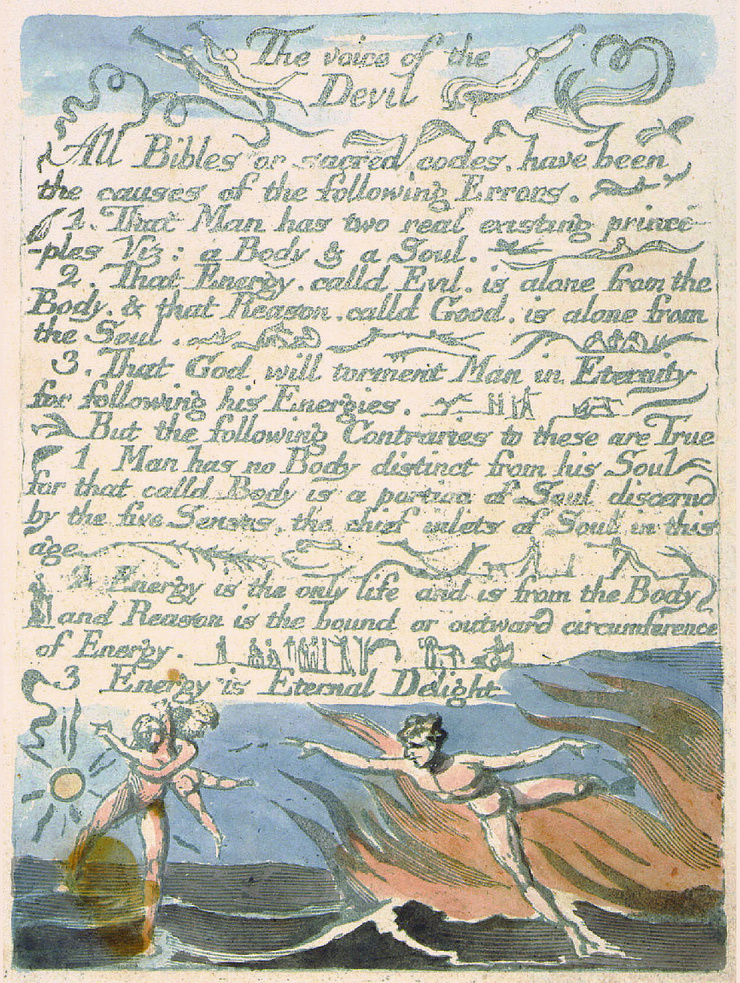 The voice of the
Devil
All Bibles or sacred codes. have been
the causes of the following Errors.
1. That Man has two real existing princi-
-ples Viz: a Body & a Soul.
2. That Energy. calld Evil. is alone from the
Body. & that Reason. calld Good. is alone from
the Soul.
3. That God will torment Man in Eternity
for following his Energies.
But the following Contraries to these are True
1 Man has no Body distinct from his Soul
for that calld Body is a portion of Soul discernd
by the five Senses. the chief inlets of Soul in this
age
2 Energy is the only life and is from the Body
and Reason is the bound or outward circumference
of Energy.
3 Energy is Eternal Delight